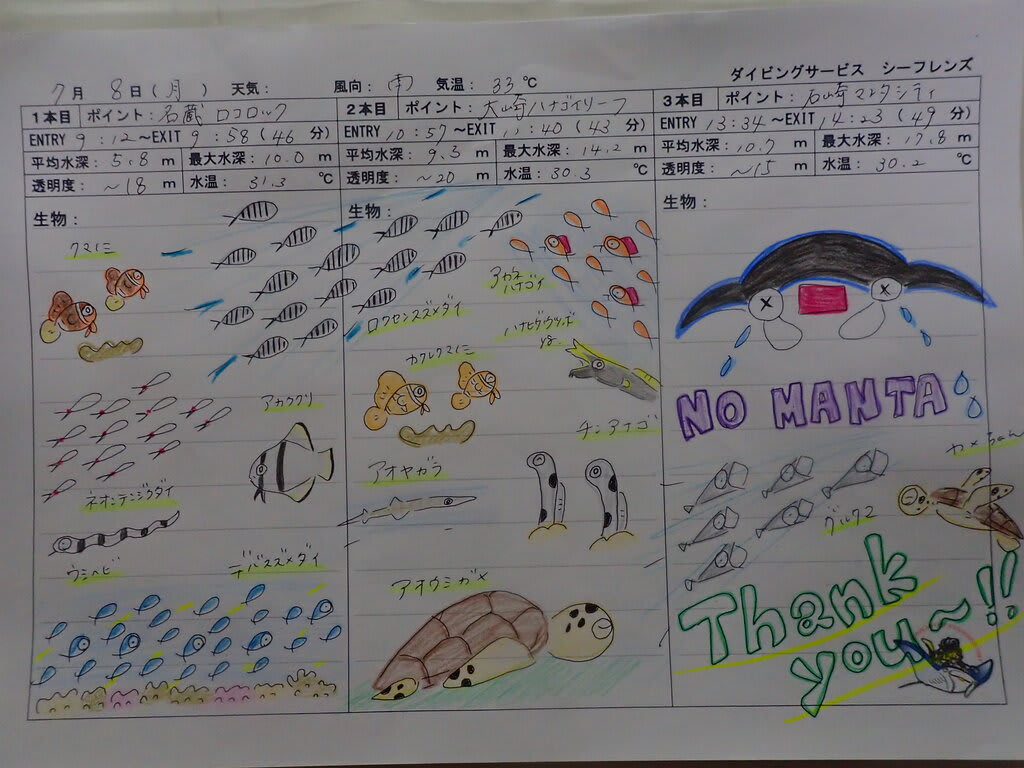 ダイビングサービス シーフレンズ
7月 8日(月) 天気： 風向：南 気温：33℃
1本目 ポイント：名蔵 ロコロック
ENTRY 9:12〜EXIT 9:58(46分)
平均水深：5.8 m 最大水深：10.0 m
透明度：〜18 m 水温：31.3 ℃
生物：
クマノミ
アカククリ
ネオンテンジクダイ
ウミヘビ
デバスズメダイ
2本目 ポイント：大崎ハナゴイリーフ
ENTRY 10:57〜EXIT 11:40(43分)
平均水深：9.3 m 最大水深：14.2 m
透明度：〜20 m 水温：30.3 ℃
生物：
アカネ
ハナゴイ
ロクセンスズメダイ
ハナヒゲウツボ
yg
カクレクマノミ
チンアナゴ
アオヤガラ
アオウミガメ
3本目 ポイント：石崎マンタシティ
ENTRY 13:34〜EXIT 14:23(49分)
平均水深：10.7 m 最大水深：17.8 m
透明度：〜15 m 水温：30.2 ℃
生物：
NO MANTA
カメちゃん
グルクン
Thank
you〜!!